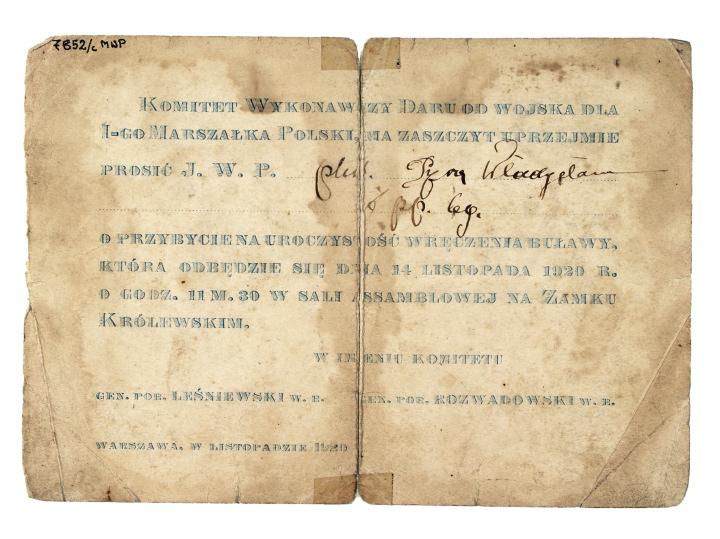 7852/c MWP
KOMITET WYKONAWCZY DARU OD WOJSKA DLA
I-GO MARSZAŁKA POLSKI, MA ZASZCZYT UPRZEJMIE
PROSIĆ J. W. P. Władysław
pp. leg.
O PRZYBYCIE NA UROCZYSTOŚĆ WRĘCZENIA BUŁAWY,
KTÓRA ODBĘDZIE SIĘ DNIA 14 LISTOPADA 1920 R.
O GODZ. 11 M. 30 W SALI ASSAMBLOWEJ NA ZAMKU
KRÓLEWSKIM.
W IMIENIU KOMITETU
GEN. POR. LEŚNIEWSKI W. R. GEN. POR. ROZWADOWSKI W. R.
WARSZAWA, W LISTOPADZIE 1920